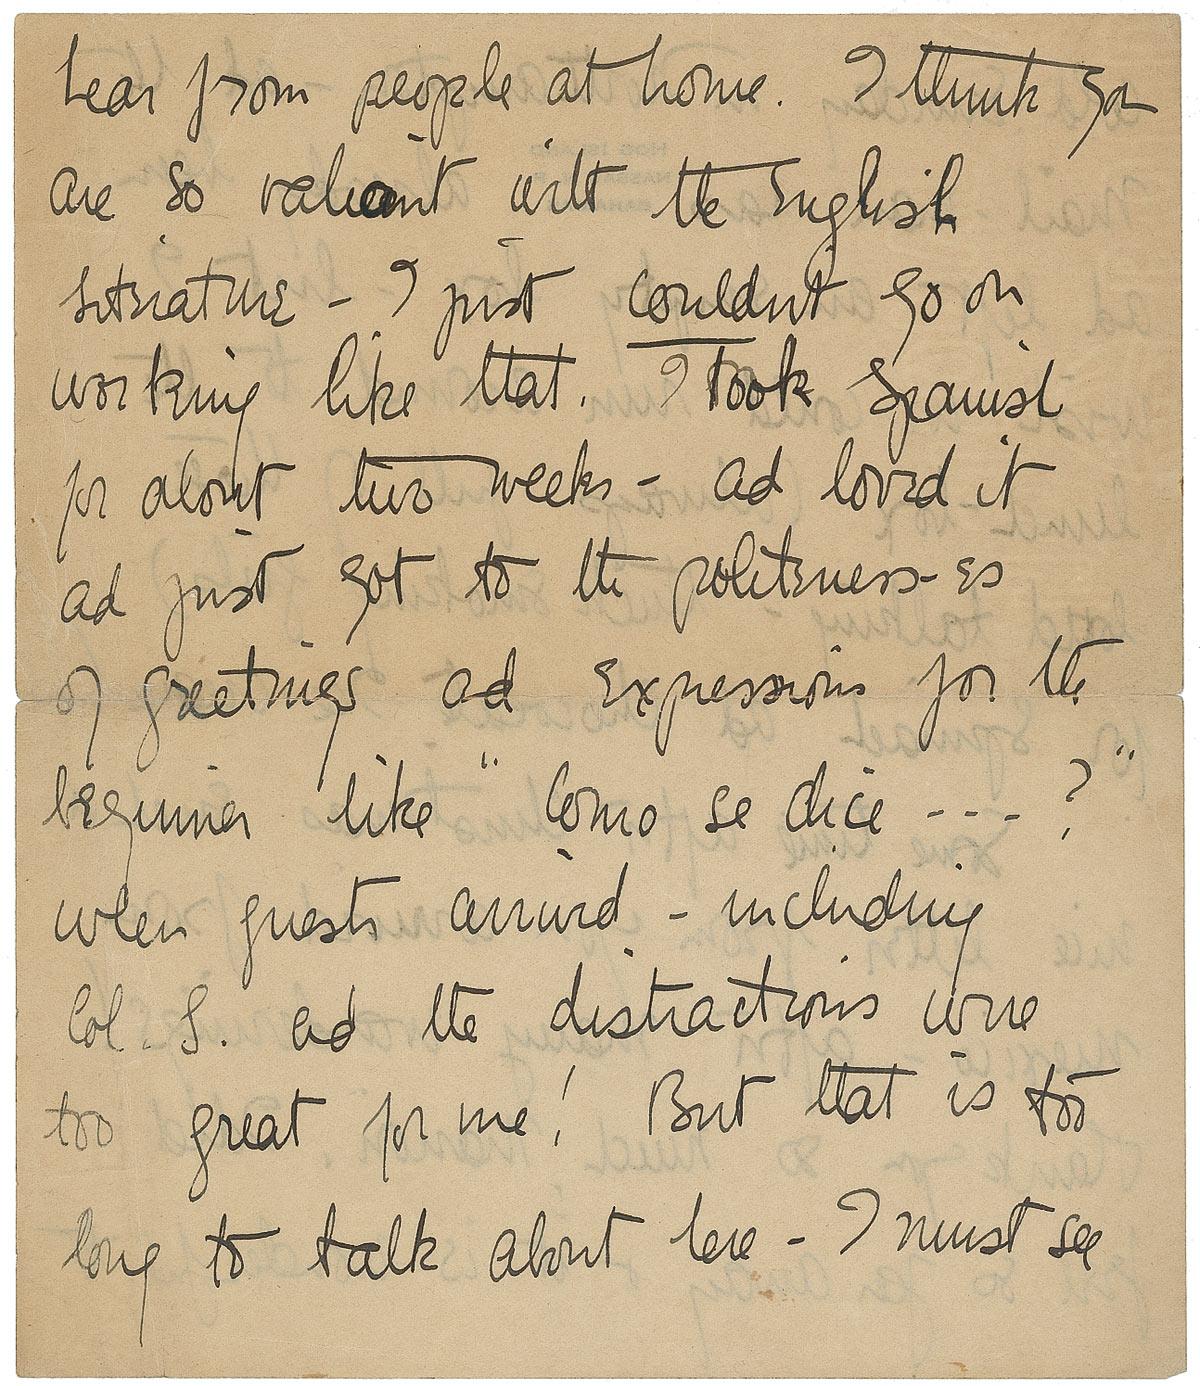 hear from people at home. I think you
are so valient with the English
literature - I just couldn't go on
working like that. I took Spanish
for about two weeks - ad loved it
ad just got to the politeness-es
of greetings ad expressions for the
beginner like " Como se dice - - - - ? "
when guests arrived - including
Col. S. ad the distractions were
too great for me! But that is too
long to talk about here - I must see